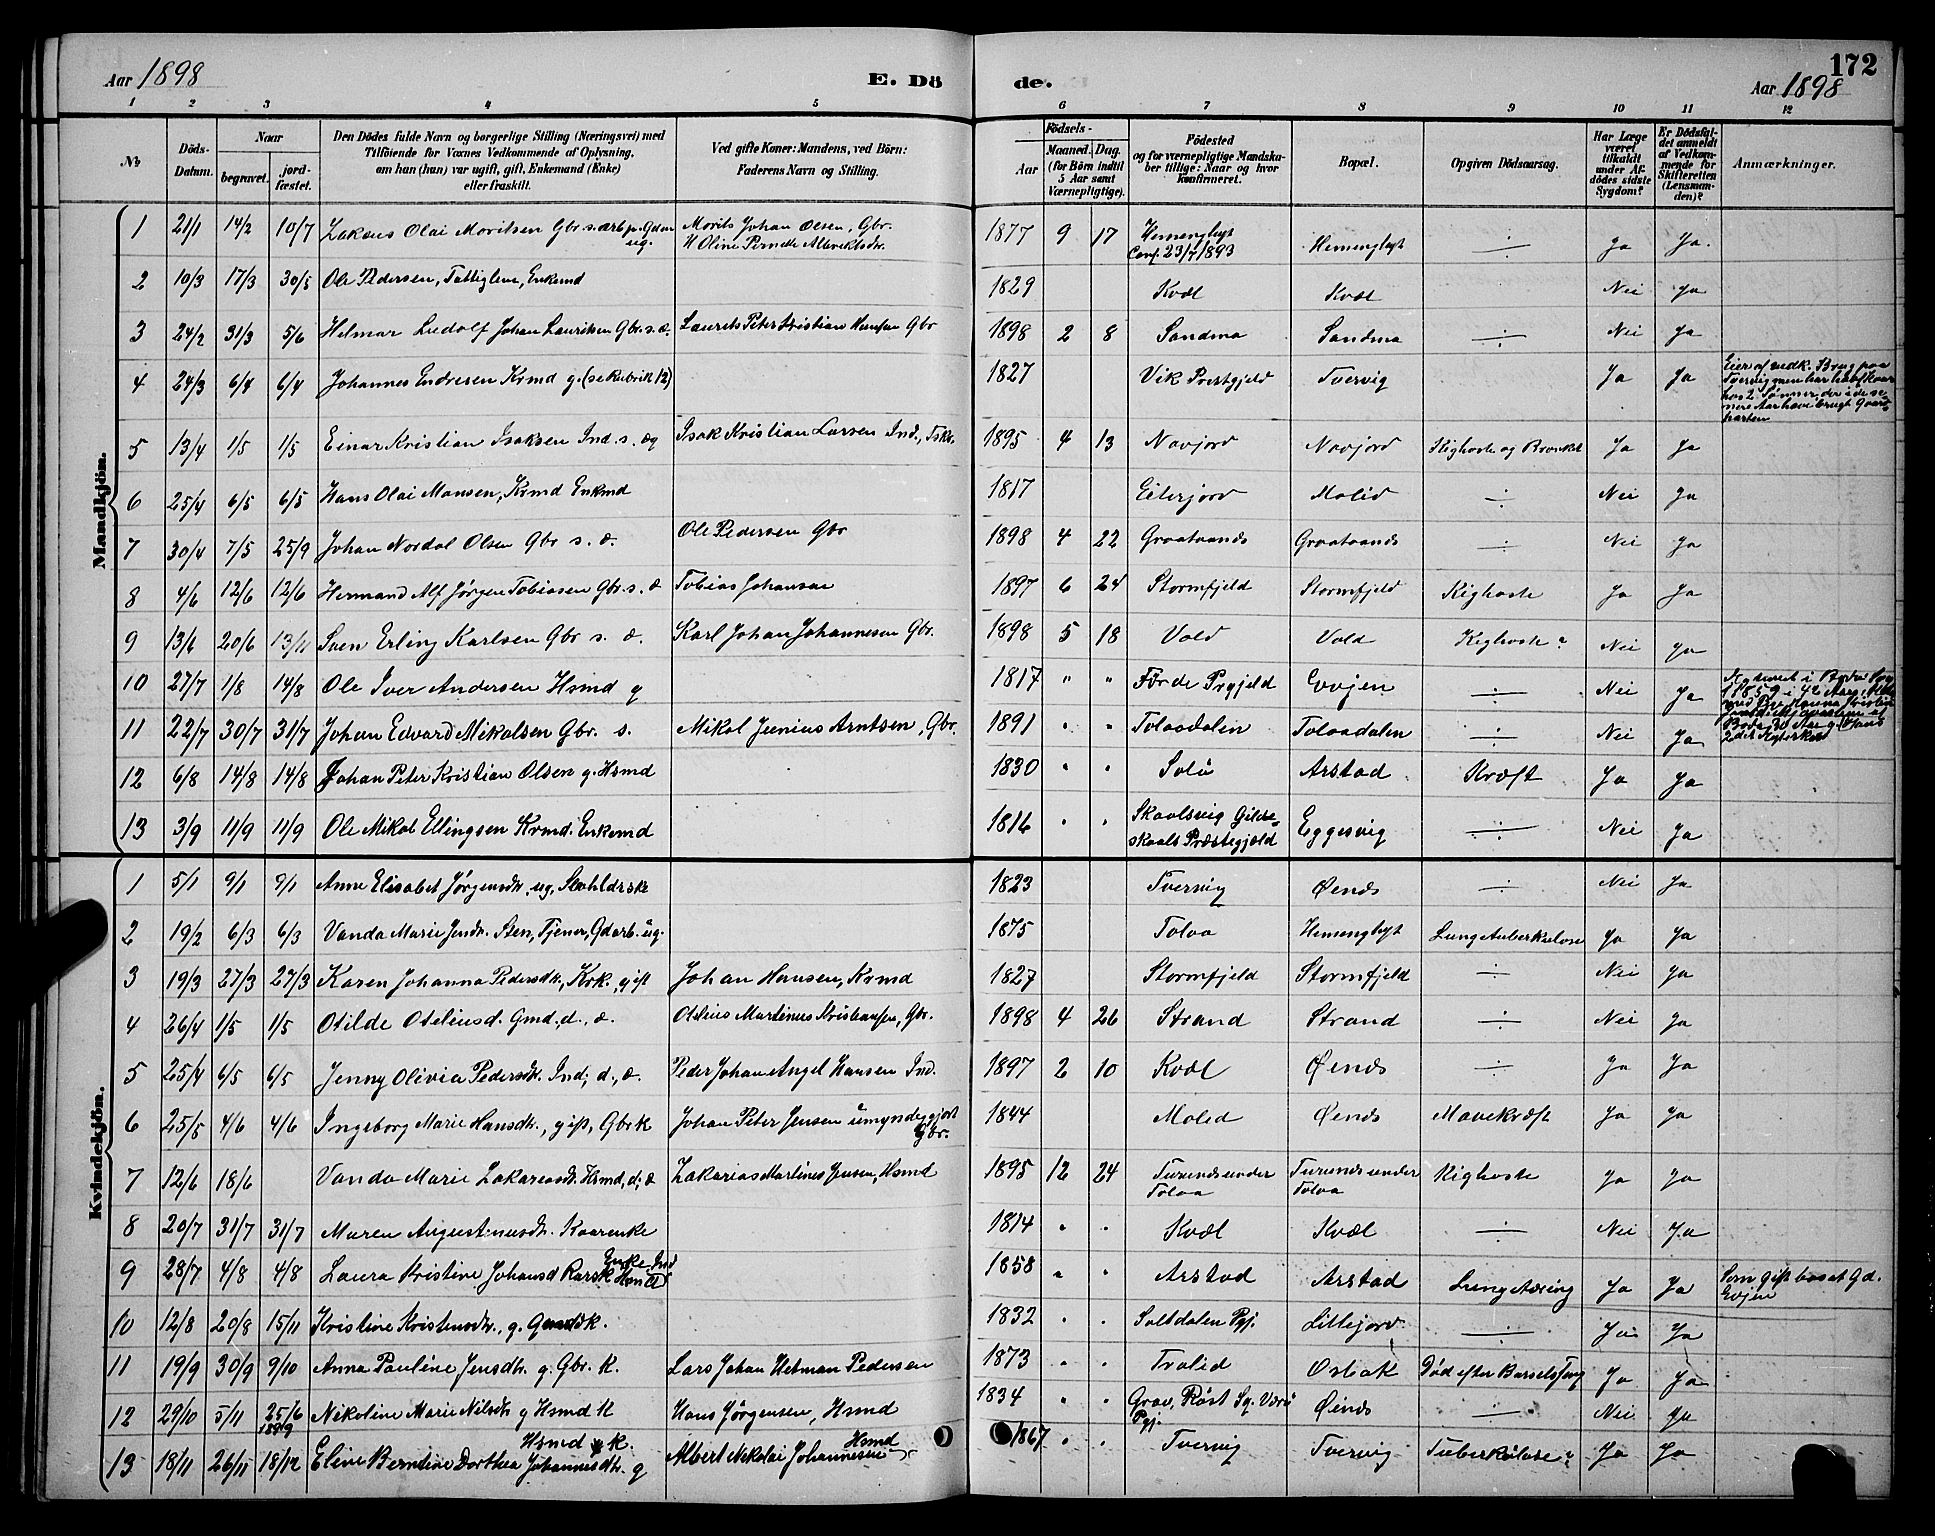 172
Aar 1898 E. Dö de. Aar 1898
1 2 3 4 5 6 7 8 9 10 11 12
No
Döds-Datum.
Naar
begravet.
jord-fæstet.
Den Dödes fulde Navn og borgerlige Stilling (Næringsvei) med
Tilföiende for Voxnes Vedkommende af Oplysning,
om han (hun) var ugift, gift, Enkemand (Enke)
eller fraskilt.
Ved gifte Koner: Mandens, ved Börn:
Faderens Navn og Stilling.
Födsels-
Aar
Maaned. Dag.
(for Börn indtil
5 Aar samt
Værnepligtige).
Födested
og for værnepligtige Mandska-
ber tillige: Naar og hvor
konfirmeret.
Bopæl.
Opgiven Dödsaarsag.
Har Læge
været
tilkaldt
under Af-
dödes sidste
Sygdom?
Er Dödsfal-
det anmeldt
af Vedkom-
mende for
Skifteretten
(Lensman-
den)?
Anmærkninger.
Mandkjön.
1 21/1 14/2 10/7 Zakæus Olai Moritsen Gbr. s. arb. p. Gden ug. Morits Johan Olsen, Gbr. H Oline Pernelle Albrektsdr. 1877 9 17 Hemenglyst Conf. 23/7 1893 Hemenglyst ÷ Ja Ja.
2 10/3 17/3 30/5 Ole Pedersen, Fattiglem, Enkemd 1829 Kvæl Kvæl Nei Ja
3 24/2 31/3 5/6 Helmar Ludolf Johan Lauritsen Gbr. s. æ. Laurits Peter Kristian Hansen Gbr 1898 2 8 Sandmo Sandmo ÷ Nei Ja
4 24/3 6/4 6/4 Johannes Endresen Krmd g. (se Rubrik 12) 1827 Vik Prestgjeld Tvervig Ja Ja Eier af nedk. Brug paa Tvervig men har havt Kaar hos 2 Sønner, der i de senere Aar have brugt Gaardparten
5 13/4 1/5 1/5 Einar Kristian Isaksen Ind. s. æg Isak Kristian Larsen Ind., Fsk. 1895 4 13 Novjord Novjord Kighoste og Bronkit Ja Ja
6 25/4 6/5 6/5 Hans Olai Monsen, Krmd Enkmd 1817 Eiterjord Molid ÷ Nei Ja
7 30/4 7/5 25/9 Johan Nordal Olsen Gbr s. æ. Ole Pedersen Gbr 1898 4 22 Graataands Graataands ÷ Nei Ja
8 4/6 12/6 12/6 Hermand Alf Jørgen Tobiassen Gbr. s. æ Tobias Johansen 1897 6 24 Stormfjeld Stormfjeld Kighoste Ja Ja
9 13/6 20/6 13/11 Sven Erling Karlsen Gbr s. æ. Karl Johan Johannesen Gbr. 1898 5 18 Vold Vold Kighoste? Nei Ja
10 27/7 1/8 14/8 Ole Iver Andersen Hsmd g 1817 " " Förde Prgjeld Evjen ÷ Nei Ja
11 22/7 30/7 31/7 Johan Edvard Mikalsen Gbr. s. Mikal Junius Arntsen, Gbr. 1891 " " Toloadalen Toloadalen ÷ Nei Ja
12 6/8 14/8 14/8 Johan Peter Kristian Olsen g. Hsmd 1830 " " Solö Arstad Kræft Ja Ja
13 3/9 11/9 11/9 Ole Mikal Ellingsen Krmd. Enkemd 1816 " " Skaalsvig Gildeskaals Præstegjæld Eggesvig ÷ Nei Ja
Kvindekjön.
1 5/1 9/1 9/1 Anne Elisabet Jørgensdtr. ug. 1823 Tvervig Øends ÷ Nei Ja
2 19/2 6/3 6/3 Vanda Marie Jensdtr. Sten, Tjener, Gdarb. ug. 1875 Toloa Hemenglyst Lungetuberkulose Ja Ja
3 19/3 27/3 27/3 Karen Johanna Pedersdtr., Krk., gift Johan Hansen, Krmd 1827 Stormfjeld Stormfjeld ÷ Nei Ja
4 26/4 1/5 1/5 Otilde Oteliusd. Gmd. d., æ. Otelius Martinus Kristiansen, Gbr. 1898 4 26 Strand Strand ÷ Nei Ja
5 25/4 6/5 6/5 Jenny Olivia Pedersdtr. Ind. d., æ. Peder Johan Angel Hansen Ind. 1897 2 10 Kvæl Øends ÷ Ja Ja
6 25/5 4/6 4/6 Ingeborg Marie Hansdtr., gift, Gbrk Johan Peter Jensen umyndiggjort Gbr. 1844 Molid Øends Mavekræft Ja Ja
7 12/6 18/6 Vanda Marie Zakariasdtr. Hsmd, d., æ Zakarias Martinus Jensen, Hsmd 1895 12 24 Turunds under Toloa Turunds under Toloa Kighoste Ja Ja
8 20/7 31/7 31/7 Maren Augustinusdtr. Kaarenke 1814 " " Kvæl Kvæl ÷ Nei Ja
9 28/7 4/8 4/8 Laura Kristine Johansd Enke Ind 1858 " " Arstad Arstad Lungetæring Ja Ja Som gift bosat Gd. Evjen
10 12/8 20/8 15/11 Kristine Kristensdtr., g. 1832 " " Saltdalen Pgj. Littejord ÷ Ja Ja
11 19/9 30/9 9/10 Anna Pauline Jensdtr. g. Gbr. k. Lars Johan Hetman Pedersen 1873 " " Trolid Osbak Død efter Barselseng Ja Ja
12 29/10 5/11 25/6 1899 Nikoline Marie Nilsdtr. g Hsmd K Hans Jørgensen, Hsmd 1834 " " Grav, Røst Sg. Værö Pgj. Øends ÷ Nei Ja
13 18/11 26/11 18/12 Eline Berntine Dorthea Johannesdtr. g Hsmd k. Albert Nikolai Johannessen Hsmd 1867 " " Tvervig Tvervig Tuberkulose? Ja Ja